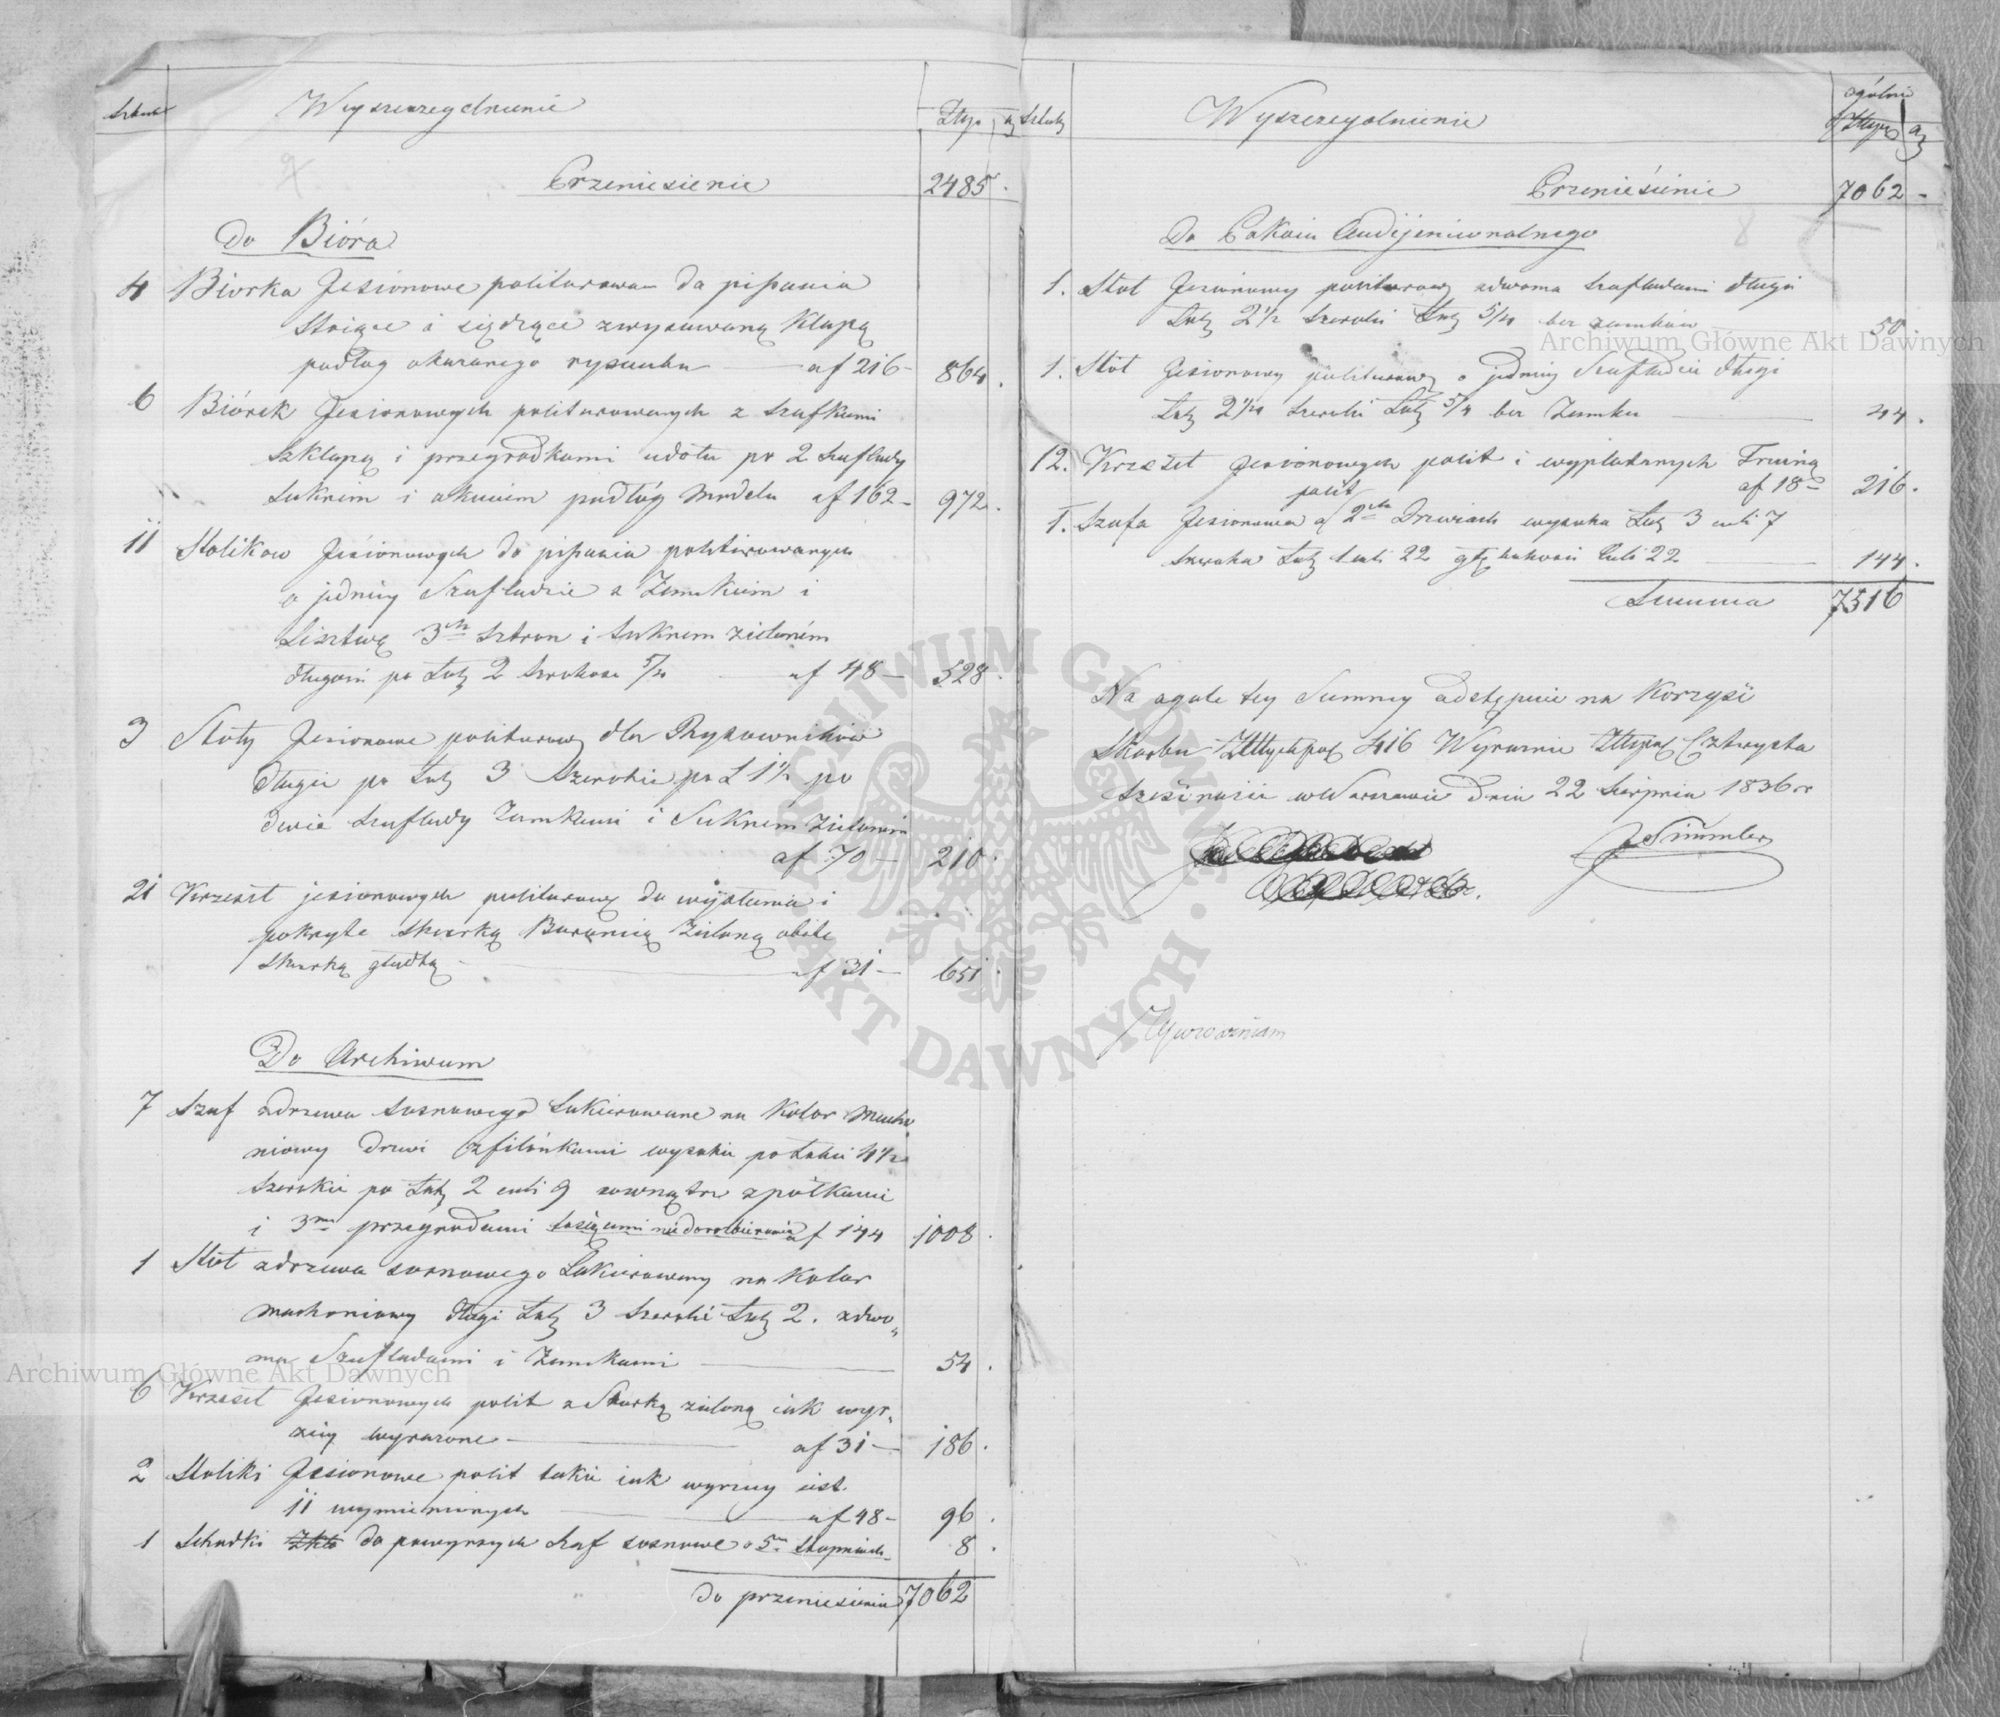 Sztuk Wyszczególnienie Złtp. g
Przeniesienie 2485.
Do Bióra
4 Biorka Jesionowe politurowan do pisania
stoiące i siędzące zwysuwaną Klapą
podług okazanego rysunku af 216 - 864.
6 Biórek Jesionowych politurowanych z szafkami
szklapą i przegrodkami udołu po 2 szuflady
suknim i okuciem podług modelu af 162 - 972.
11 Stolikow Jesionowych do pisania politirowanych
o jedney Szufludzie z Zamkiem i
Lisztwę 3ch sztron i suknem zieloném
długośi po Łuty 2 szrokosi 5/4 af 48 - 528.
3 Stoły Jesionowe politurowy dla Rysowników
długie po Łuty 3 Szerokie po Ł 1 1/2 po
dwie szuflady Zamkami i Suknem Zielonem
af 70 - 210.
21 Krzeseł jesionowych politurowy do wysłania i
pokryte skurką Baranią Zieloną abite
skurką gładką af 31 - 651.
Do Archiwum
7 Szaf zdrzewa sosnowego Lakierowane na Kolor Macho
niowy Drwi zfilónkami wysokie po Łokci 4 1/2
szerokie po Łuty 2 cali 9 wewnątrz zpółkami
i 3ma przegrodami af 144 1008.
1 Stół zdrzewa sosnowego Lakierowany na Kolor
machoniowy długi Łuty 3 szeroki Łuty 2. zdwo„
ma Szufladami i Zamkami 54.
6 Krzeseł Jesionowych polit z Skurką zieloną iak wyr„
żéy wyrazone af 31 - 186.
2 Stoliki Jesionowe polit takie iak wyrzey iest.
11 wymienionych af 48 - 96.
1 Schudki do powyrszych szaf sosnowe o 5u Stopniach 8.
do przeniesienia 7062
Sztuk Wyszczególnienie ogólnie Złtych g
Przeniésienie 7062 -
Do Pokoiu Audijencionalnego
1. Stoł Jesionowy politurowy zdwoma szufladami długi
Łuty 2 1/2 szeroki Łuty 5/4 bez zamków 50
1. Stół Jesionowy politurowy o jedniy Szufladzie długi
Łuty 2 1/4 szeroki Łuty 5/4 bez Zamku 44.
12. Krzeseł Jesionowych polit i wyplatanych Trciną
af 18 - 216.
1. Szafa Jesionowa polit o 2ch Drzwiach wysoka Łuty 3 cali 7
szeroka Łuty 1 cali 22 głębokosci Cali 22 144.
Summa 7516
Na ogole tey Summy odstępuie na Korzyść
Skarbu Złtychpol 416 Wyraznie Złtpol Cztérysta
szesźnasie wWarszawie dnia 22 Sierpnia 1836 r
J Simmler
Archiwum Główne Akt Dawnych
Archiwum Główne Akt Dawnych
ARCHIWUM GŁÓWNE AKT DAWNYCH